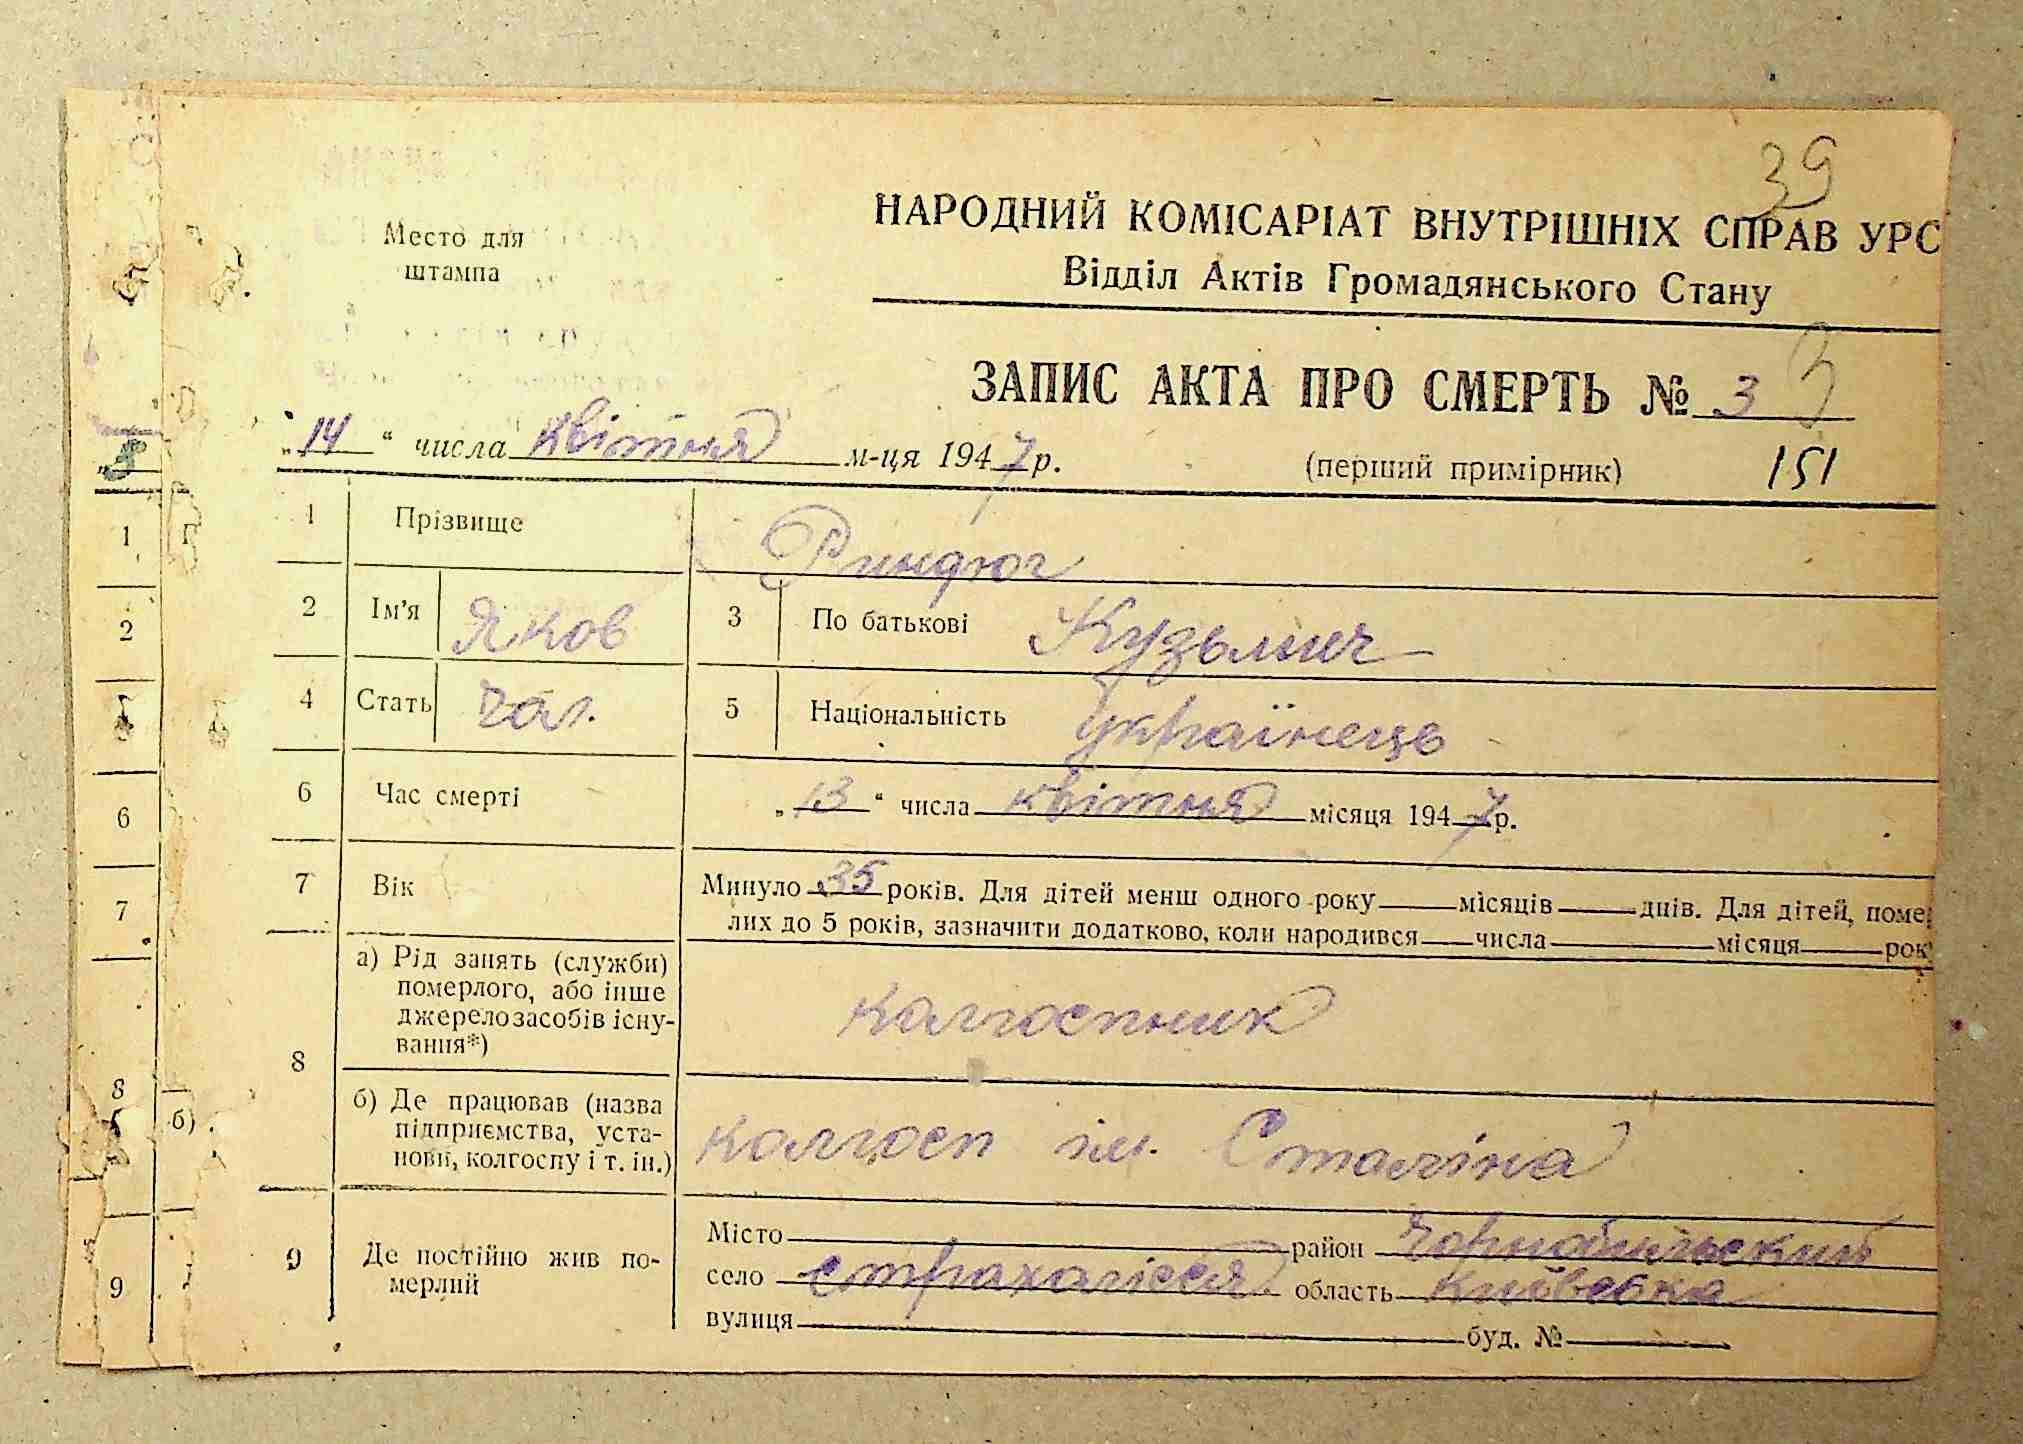 39
Место для
штампа
НАРОДНИЙ КОМІСАРІАТ ВНУТРІШНІХ СПРАВ УРС
Відділ Актів Громадянського Стану
ЗАПИС АКТА ПРО СМЕРТЬ № 3
„14“ числа квітня м-ця 1947 р.
(перший примірник) 151
1 Прізвище Риндюг
2 Ім'я Яков 3 По батькові Кузьмич
4 Стать Чол. 5 Національність Українець
6 Час смерті „13“ числа квітня місяця 1947 р.
7 Вік Минуло 35 років. Для дітей менш одного року місяців днів. Для дітей, помер
лих до 5 років, зазначити додатково, коли народився числа місяця рок
8 а) Рід занять (служби)
померлого, або інше
джерело засобів існу-
вання*)
колгоспник
б) Де працював (назва
підприємства, уста-
нови, колгоспу і т. ін.)
колгосп ім. Сталіна
9 Де постійно жив по-
мерлий
Місто район Чорнобильский
село страхолісся область Київська
вулиця буд. №
1
2
6
7
8
б)
9